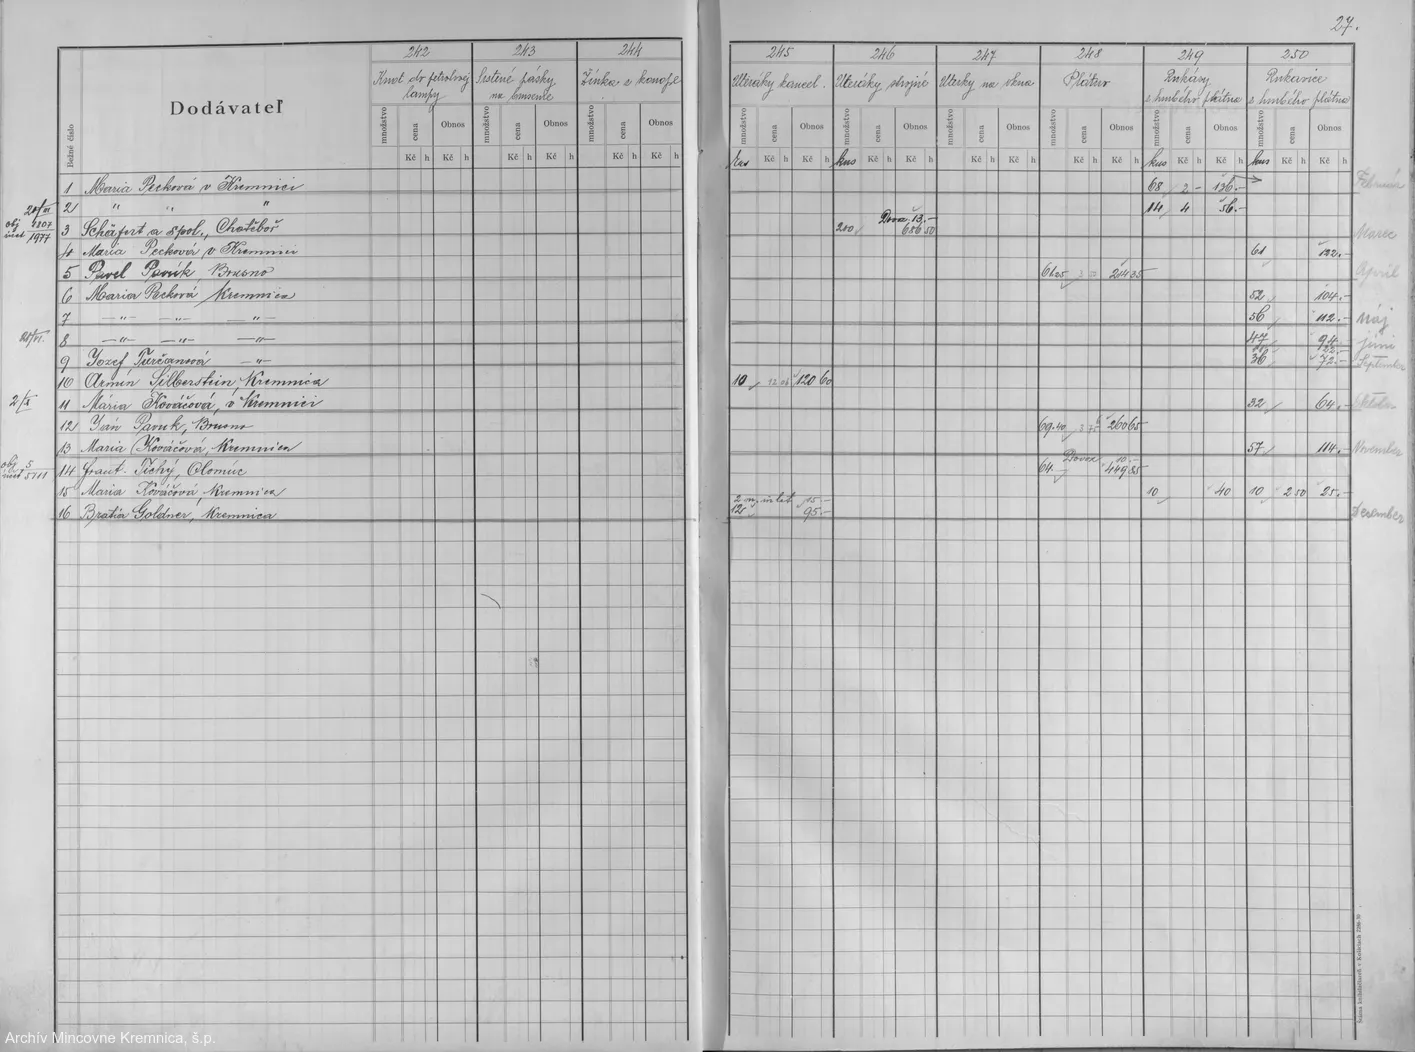 27.
242 243 244 245 246 247 248 249 250
Knot do petrolovej lampy
pásky na
z konope
Uteráky kancel.
Uteráky strojné
Uterky na okna
Plátno
Rukávy z hrubého plátna
Rukavice z hrubého plátna
Bežné číslo Dodávateľ
množstvo cena Obnos množstvo cena Obnos množstvo cena Obnos množstvo cena Obnos množstvo cena Obnos množstvo cena Obnos množstvo cena Obnos množstvo cena Obnos množstvo cena Obnos
Kč h Kč h Kč h Kč h Kč h Kč h Kč h Kč h Kč h Kč h Kč h Kč h Kč h Kč h Kč h Kč h Kč h Kč h
kus kus kus
1 Maria Pecková v Kremnici 68 2 – 136.– Február
2 " " " 14 4 56.–
obj. 1807
účet 1977 3 Schäfert a spol., Chotěboř 210 Dovoz 13.– 686 50 Marec
4 Maria Pecková v Kremnici 61 122.–
5 Pavel Pavúk, Brusno 244 35 Apríl
6 Maria Pecková Kremnica 52 104.–
7 –"– –"– –"– 56 112.– Máj
8 –"– –"– –"– 47 94.– júni
9 Jozef Turčanová –"– 36 72.– September
10 Armin Silberstein, Kremnica 10 12 06 120 60
11 Mária Kováčová, v Kremnici 32 64.– Október
12 Ján Pavuk, Brusno 69.40 3 75 260 65
13 Maria Kováčová, Kremnica 57 114.– November
obj. 5
účet 5111 14 Frant. Tichý, Olomúc 64 Dovoz 10.– 449 85
15 Maria Kováčová, Kremnica 10 40 10 2 50 25.–
16 Bratia Goldner, Kremnica 12 95.– December
Archív Mincovne Kremnica, š.p.